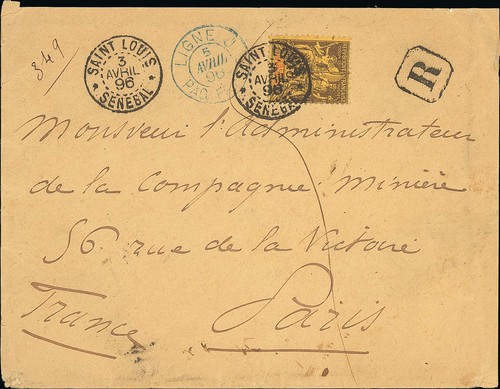 849
SAINT LOUIS
3
AVRIL
96
SENEGAL
LIGNE J
5
AVRIL
96
PAQ. FR
SAINT LOUIS
3
AVRIL
96
SENEGAL
R
Monsieur l'Administrateur
de la Compagnie Minière
56 rue de la Victoire
Paris
France